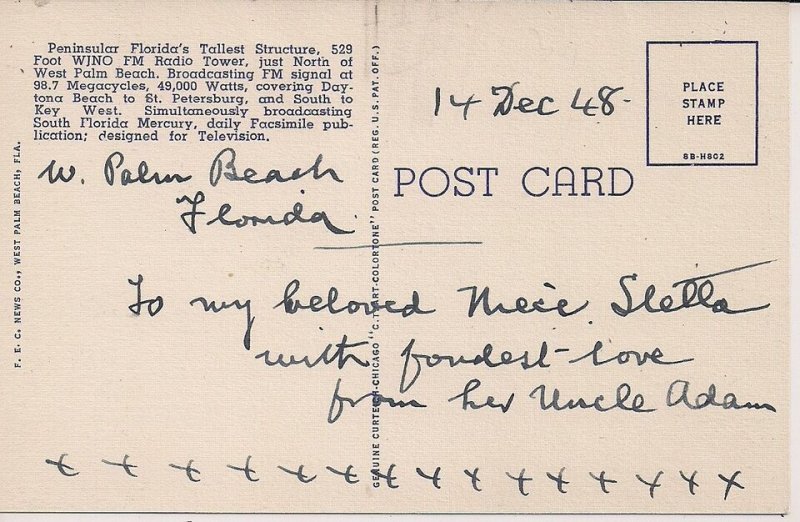 Peninsular Florida's Tallest Structure, 529
Foot WJNO FM Radio Tower, just North of
West Palm Beach. Broadcasting FM signal at
98.7 Megacycles, 49,000 Watts, covering Day-
tona Beach to St. Petersburg, and South to
Key West. Simultaneously broadcasting
South Florida Mercury, daily Facsimile pub-
lication; designed for Television.
14 Dec 48-
PLACE
STAMP
HERE
8B-H802
W. Palm Beach
Florida.
POST CARD
To my beloved Niece. Stella
with fondest love
from her Uncle Adam
x x x x x x x x x x x x x x x x
F. E. C. NEWS CO., WEST PALM BEACH, FLA.
GENUINE CURTEICH-CHICAGO "C. T. ART-COLORTONE" POST CARD (REG. U.S. PAT. OFF.)